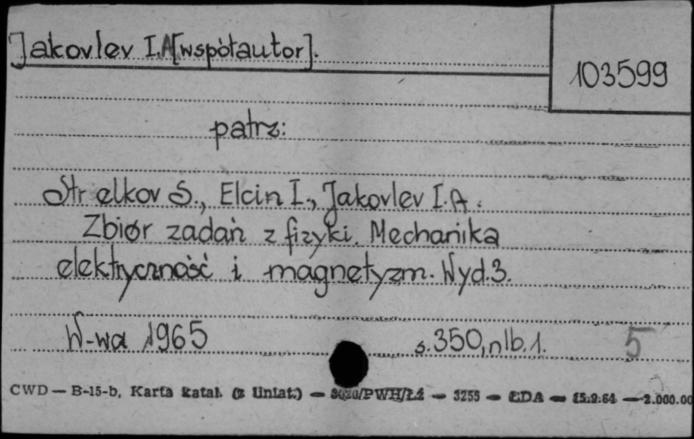 Jakovlev I.A[współautor].
103599
patrz:
Strelkov S., Elcin I., Jakovlev I.A.
Zbiór zadań z fizyki. Mechanika
elektryczność i magnetyzm. Wyd.3.
W-wa 1965 s.350,nlb.1. 5
CWD — B-15-b, Karta katal. (z liniat.) — /PWH/Łź — 3255 — ŁDA — 15.9.64 — 2.000.00